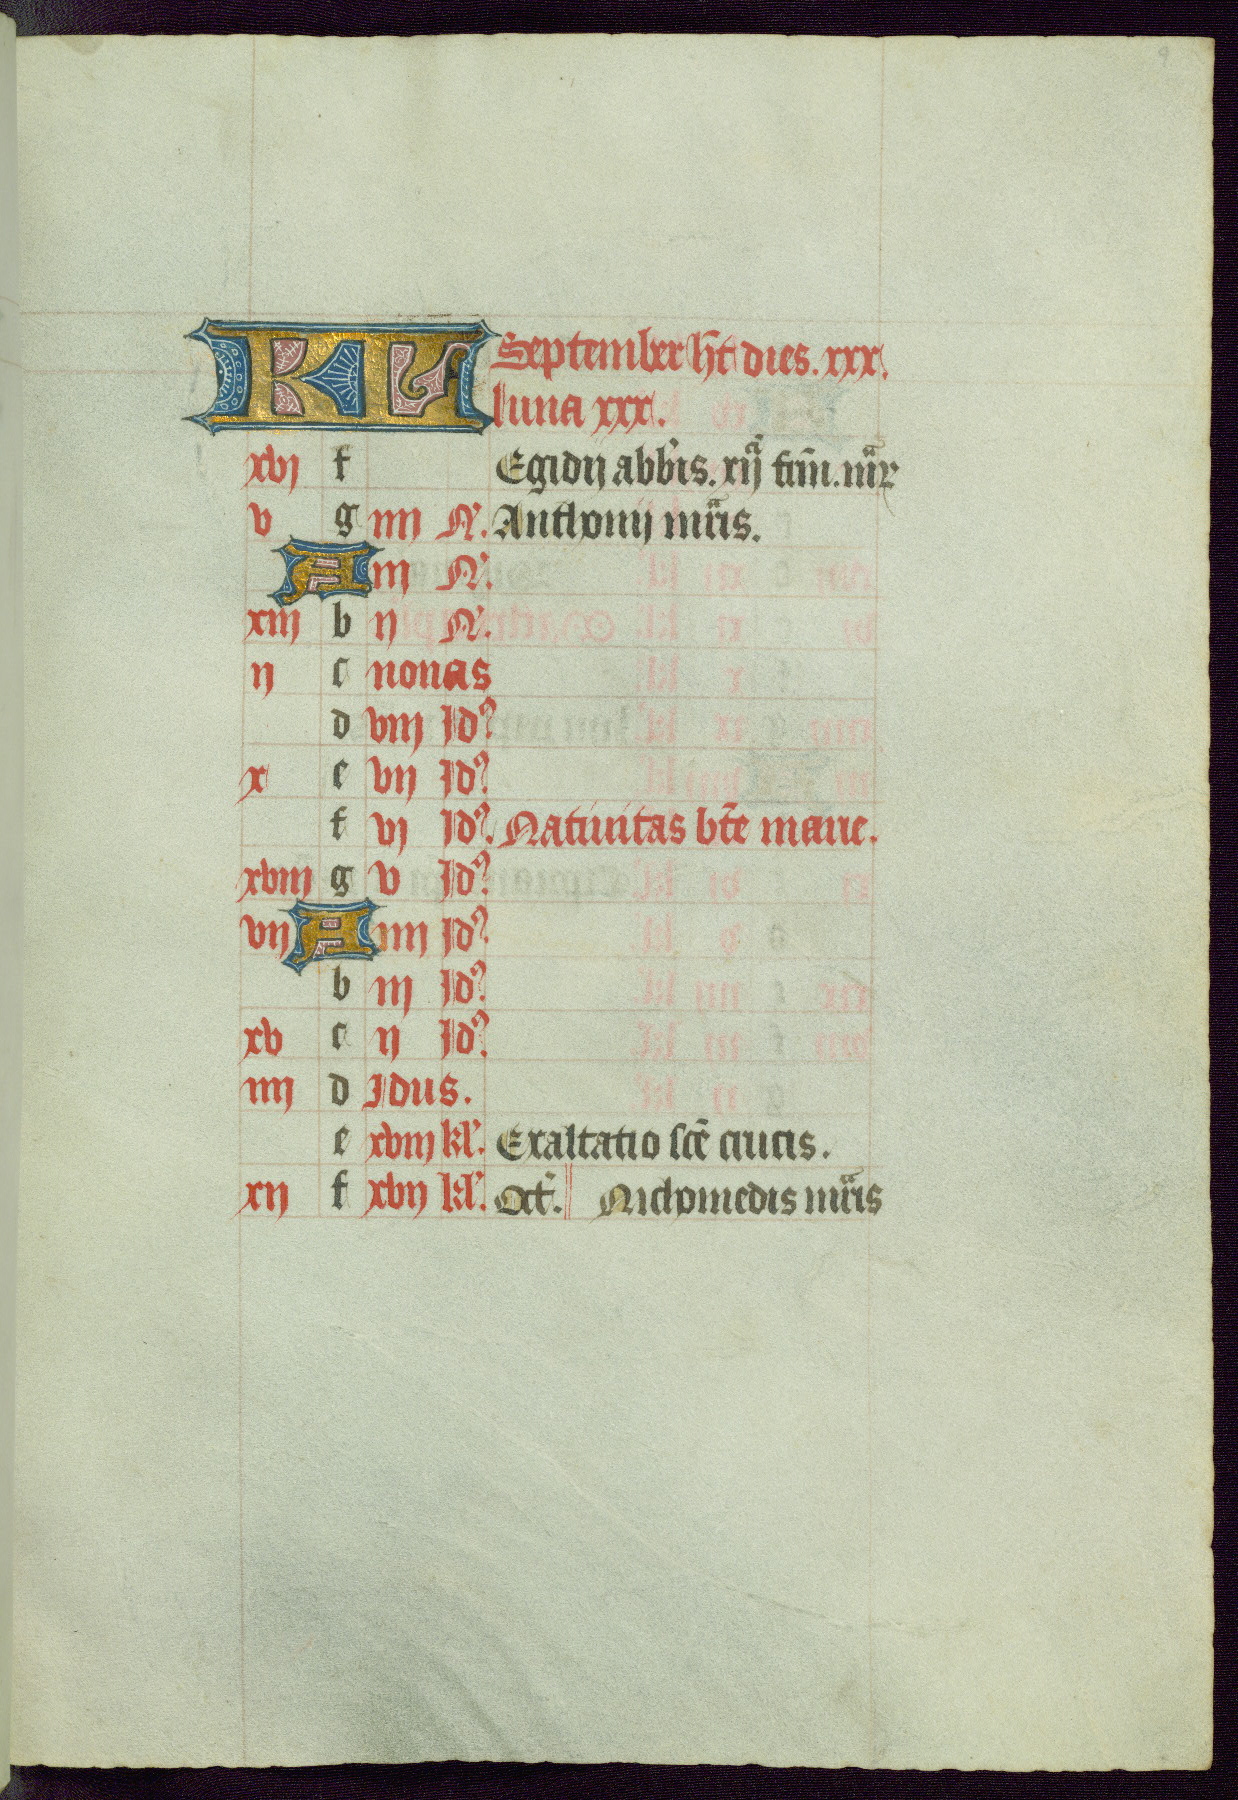 KL September h̄t dies. xxx.
luna xxx.
xvj f Egidij abb̄is. xijᵃ fr̄m. mr̄
v g iiij N. Anthonij mr̄is.
A iij N.
xiij b ij N.
ij c nonas
d viij Jdꝰ
x e vij Jdꝰ
f vj Jdꝰ. Natiuitas bt̄e marie.
xviij g v Jdꝰ
vij A iiij Jdꝰ
b iij Jdꝰ
xv c ij Jdꝰ
iiij d Jdus.
e xviij kl'. Exaltatio sc̄e crucis.
xij f xvij kl'. Oct'. Nichomedis mr̄is
9